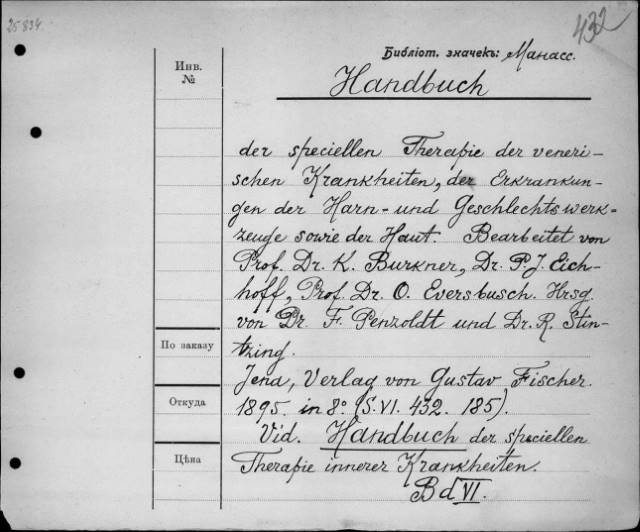 25834.
432
Библіот. значекъ: Манасс.
Инв.
№
Handbuch
der speciellen Therapie der veneri-
schen Krankheiten, der Erkrankun-
gen der Harn- und Geschlechtswerk-
zeuge sowie der Haut. Bearbeitet von
Prof. Dr. K. Burkner, Dr. P. J. Eich-
hoff, Prof. Dr. O. Eversbusch. Hrsg.
von Dr. F. Penzoldt und Dr. R. Stin-
По заказу
tzing.
Jena, Verlag von Gustav Fischer.
Откуда
1895. in 8º (S. VI. 432. 185).
Vid. Handbuch der speciellen
Цѣна
Therapie innerer Krankheiten.
Bd VI.